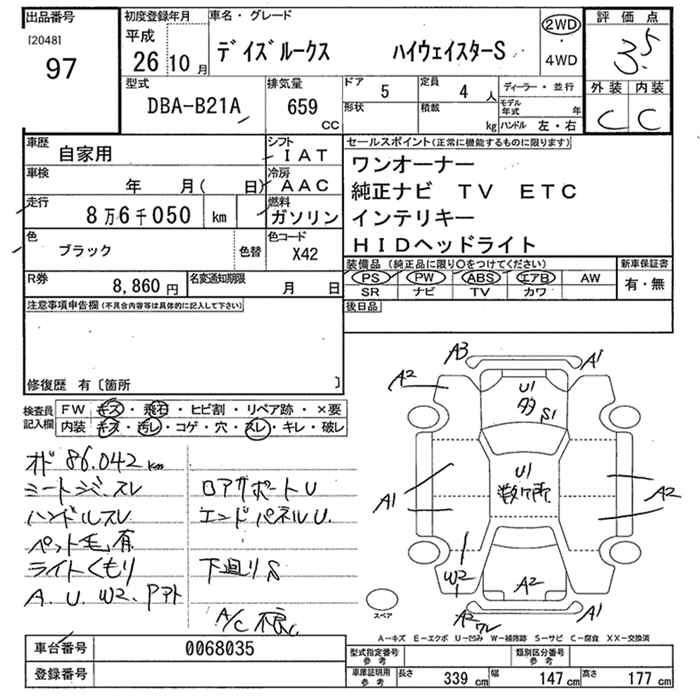 出品番号
[2048]
97
初度登録年月
平成
26 10 月
車名・グレード
デイズルークス ハイウェイスターS
2WD
・
4WD
評価点
3.5
外装 内装
C C
型式
DBA-B21A
排気量
659
CC
ドア 5
形状
定員 4 人
積載 kg
ディーラー・並行
モデル年式 年
ハンドル 左・右
車歴
自家用
シフト
IAT
車検
年 月( 日)
冷房
AAC
走行
8万6千050 km
燃料
ガソリン
色
ブラック
色替
色コード
X42
R券
8,860 円
名変通知期限
月 日
セールスポイント(正常に機能するものに限ります)
ワンオーナー
純正ナビ TV ETC
インテリキー
HIDヘッドライト
装備品(純正品に限り○をつけてください)
PS PW ABS エアB AW
SR ナビ TV カワ
新車保証書
有・無
後日品
注意事項申告欄(不具合内容等は具体的に記入して下さい)
修復歴 有〔箇所 〕
検査員
記入欄
FW キズ・飛石・ヒビ割・リペア跡・×要
内装 キズ・汚レ・コゲ・穴・スレ・キレ・破レ
オド 86.042 km
ハンドルスレ
ペット毛有
ライトくもり
A.U.W2.
ロアサポートU
エンドパネルU.
下廻りS
A/C不良
A3
A1
A2
U1
多
S1
A1
U1
数ヶ所
A2
W2
A2
A2
ワレ
A1
スペア
A-キズ E-エクボ U-凹み W-補修跡 S-サビ C-腐食 XX-交換済
車台番号
0068035
登録番号
型式指定番号
参考
類別区分番号
参考
車庫証明用
参考
長さ 339 cm
幅 147 cm
高さ 177 cm